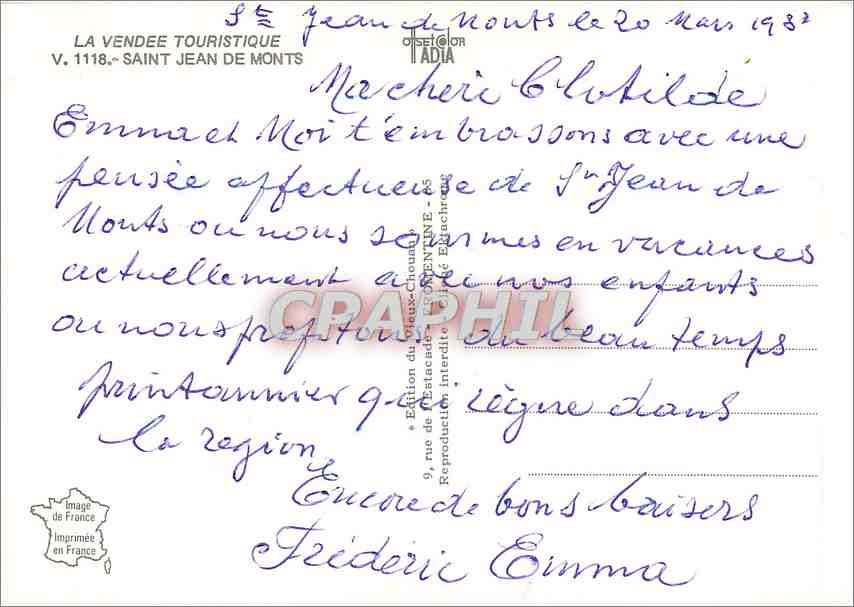 Ste Jean de Monts le 20 Mars 1982
LA VENDEE TOURISTIQUE
V. 1118.- SAINT JEAN DE MONTS
offset color
IADIA
Ma cheri Clotilde
Emma et Moi t'embrassons avec une
pensée affectueuse de St Jean de
Monts ou nous sommes en vacances
actuellement avec nos enfants
ou nous profitons du beau temps
printannier qui règne dans
la region
Encore de bons baisers
Frédéric Emma
« Edition du Vieux-Chouan »
9, rue de l'Estacade - FROMENTINE - 85
Reproduction interdite - Cliché Ektachrome
Image
de France
Imprimée
en France
CPAPHIL